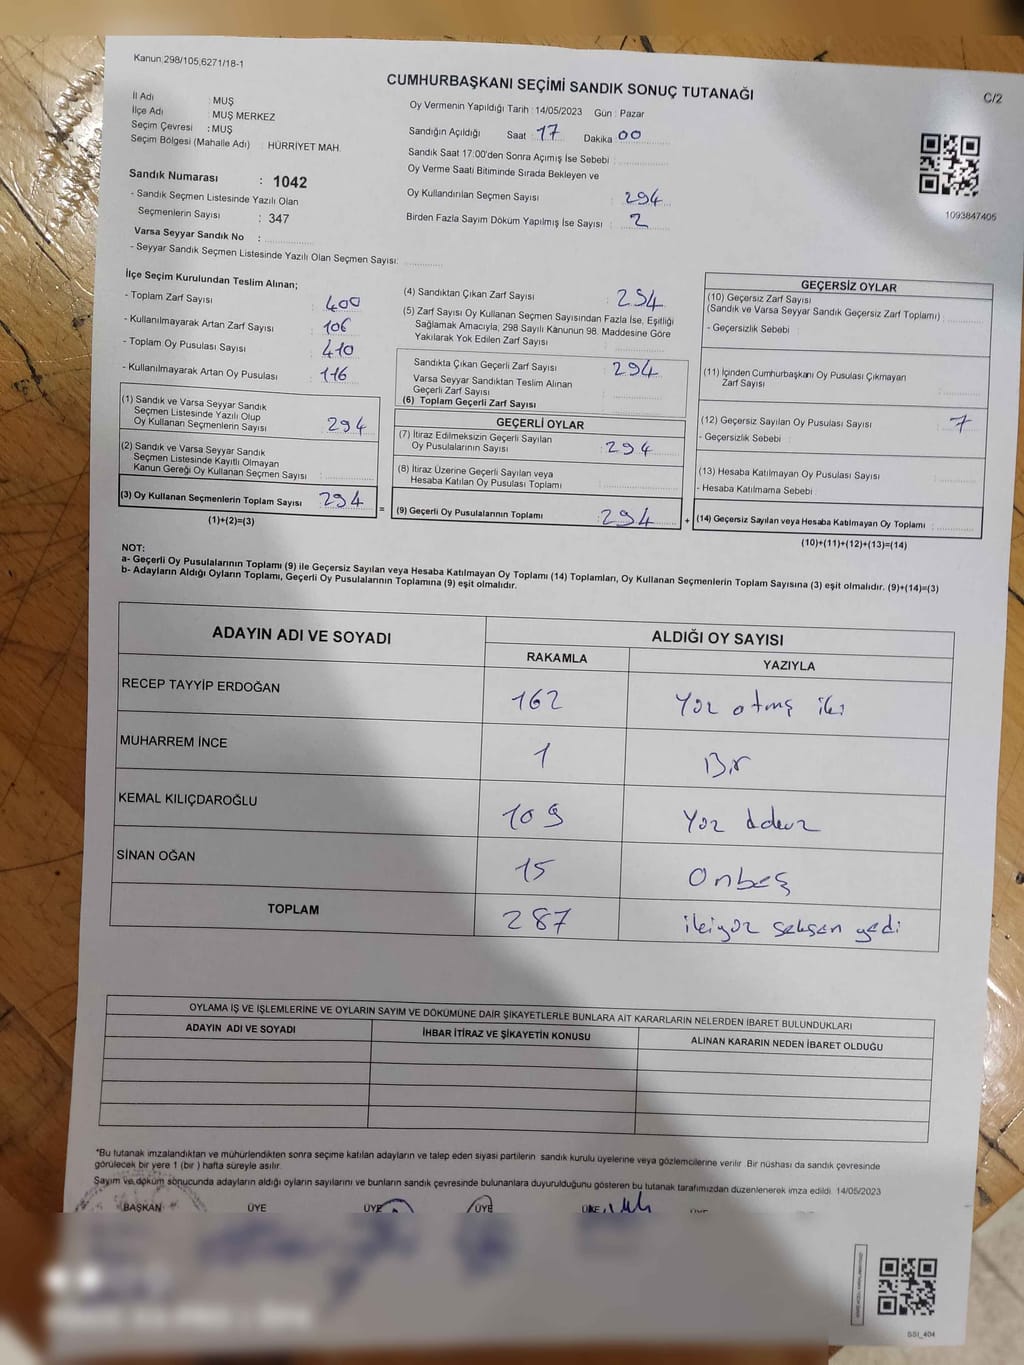 Kanun:298/105,6271/18-1
CUMHURBAŞKANI SEÇİMİ SANDIK SONUÇ TUTANAĞI
C/2
İl Adı : MUŞ
İlçe Adı : MUŞ MERKEZ
Seçim Çevresi : MUŞ
Seçim Bölgesi (Mahalle Adı) : HÜRRİYET MAH.
Sandık Numarası : 1042
- Sandık Seçmen Listesinde Yazılı Olan
Seçmenlerin Sayısı : 347
Varsa Seyyar Sandık No :
- Seyyar Sandık Seçmen Listesinde Yazılı Olan Seçmen Sayısı:
Oy Vermenin Yapıldığı Tarih : 14/05/2023 Gün : Pazar
Sandığın Açıldığı Saat : 17 Dakika : 00
Sandık Saat 17:00'den Sonra Açımış İse Sebebi :
Oy Verme Saati Bitiminde Sırada Bekleyen ve
Oy Kullandırılan Seçmen Sayısı : 294
Birden Fazla Sayım Döküm Yapılmış İse Sayısı : 2
1093847406
İlçe Seçim Kurulundan Teslim Alınan;
- Toplam Zarf Sayısı : 400
- Kullanılmayarak Artan Zarf Sayısı : 106
- Toplam Oy Pusulası Sayısı : 410
- Kullanılmayarak Artan Oy Pusulası : 116
(1) Sandık ve Varsa Seyyar Sandık
Seçmen Listesinde Yazılı Olup
Oy Kullanan Seçmenlerin Sayısı : 294
(2) Sandık ve Varsa Seyyar Sandık
Seçmen Listesinde Kayıtlı Olmayan
Kanun Gereği Oy Kullanan Seçmen Sayısı :
(3) Oy Kullanan Seçmenlerin Toplam Sayısı : 294
(1)+(2)=(3)
=
(4) Sandıktan Çıkan Zarf Sayısı : 294
(5) Zarf Sayısı Oy Kullanan Seçmen Sayısından Fazla İse, Eşitliği
Sağlamak Amacıyla, 298 Sayılı Kanunun 98. Maddesine Göre
Yakılarak Yok Edilen Zarf Sayısı :
Sandıkta Çıkan Geçerli Zarf Sayısı : 294
Varsa Seyyar Sandıktan Teslim Alınan
Geçerli Zarf Sayısı :
(6) Toplam Geçerli Zarf Sayısı :
GEÇERLİ OYLAR
(7) İtiraz Edilmeksizin Geçerli Sayılan
Oy Pusulalarının Sayısı : 294
(8) İtiraz Üzerine Geçerli Sayılan veya
Hesaba Katılan Oy Pusulası Toplamı :
(9) Geçerli Oy Pusulalarının Toplamı : 294
+
GEÇERSİZ OYLAR
(10) Geçersiz Zarf Sayısı
(Sandık ve Varsa Seyyar Sandık Geçersiz Zarf Toplamı) :
- Geçersizlik Sebebi :
(11) İçinden Cumhurbaşkanı Oy Pusulası Çıkmayan
Zarf Sayısı :
(12) Geçersiz Sayılan Oy Pusulası Sayısı : 7
- Geçersizlik Sebebi :
(13) Hesaba Katılmayan Oy Pusulası Sayısı :
- Hesaba Katılmama Sebebi :
(14) Geçersiz Sayılan veya Hesaba Katılmayan Oy Toplamı :
(10)+(11)+(12)+(13)=(14)
NOT:
a- Geçerli Oy Pusulalarının Toplamı (9) ile Geçersiz Sayılan veya Hesaba Katılmayan Oy Toplamı (14) Toplamları, Oy Kullanan Seçmenlerin Toplam Sayısına (3) eşit olmalıdır. (9)+(14)=(3)
b- Adayların Aldığı Oyların Toplamı, Geçerli Oy Pusulalarının Toplamına (9) eşit olmalıdır.
ADAYIN ADI VE SOYADI
ALDIĞI OY SAYISI
RAKAMLA YAZIYLA
RECEP TAYYİP ERDOĞAN 162 Yüz atmış iki
MUHARREM İNCE 1 Bir
KEMAL KILIÇDAROĞLU 109 Yüz
SİNAN OĞAN 15 Onbeş
TOPLAM 287 ikiyüz seksen yedi
OYLAMA İŞ VE İŞLEMLERİNE VE OYLARIN SAYIM VE DÖKÜMÜNE DAİR ŞİKAYETLERLE BUNLARA AİT KARARLARIN NELERDEN İBARET BULUNDUKLARI
ADAYIN ADI VE SOYADI İHBAR İTİRAZ VE ŞİKAYETİN KONUSU ALINAN KARARIN NEDEN İBARET OLDUĞU
*Bu tutanak imzalandıktan ve mühürlendikten sonra seçime katılan adayların ve talep eden siyasi partilerin sandık kurulu üyelerine veya gözlemcilerine verilir. Bir nüshası da sandık çevresinde
görülecek bir yere 1 (bir ) hafta süreyle asılır.
Sayım ve döküm sonucunda adayların aldığı oyların sayılarını ve bunların sandık çevresinde bulunanlara duyurulduğunu gösteren bu tutanak tarafımızdan düzenlenerek imza edildi. 14/05/2023
BAŞKAN ÜYE ÜYE ÜYE ÜYE
SSI_404